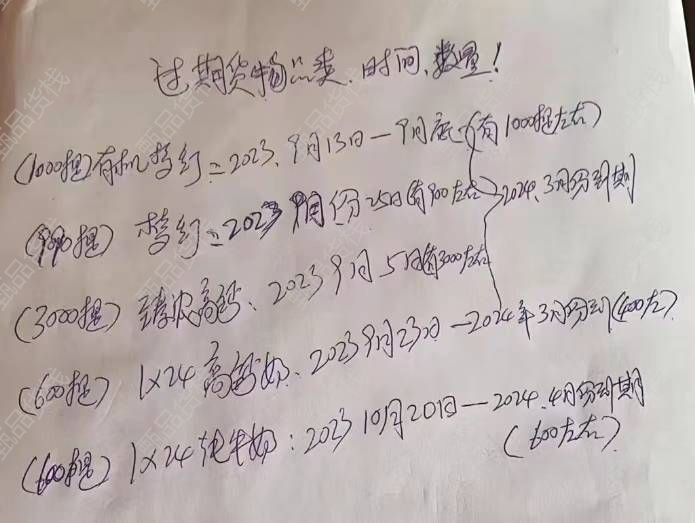 过期货物品类、时间、数量!
(1000提)有机梦幻=2023.9月13日—9月底(有1000提左右)
(900提) 梦幻=2023 月份25日(有900左右) 2024.3月份到期
(3000提) 臻浓高钙、2023 9月 5日有3000左右
(600提) 1×24高钙奶、2023 9月23日—2024年3月份到(400左)
(600提) 1×24纯牛奶:2023 10月20日—2024.4月份到期
(600左右)
甄品货栈